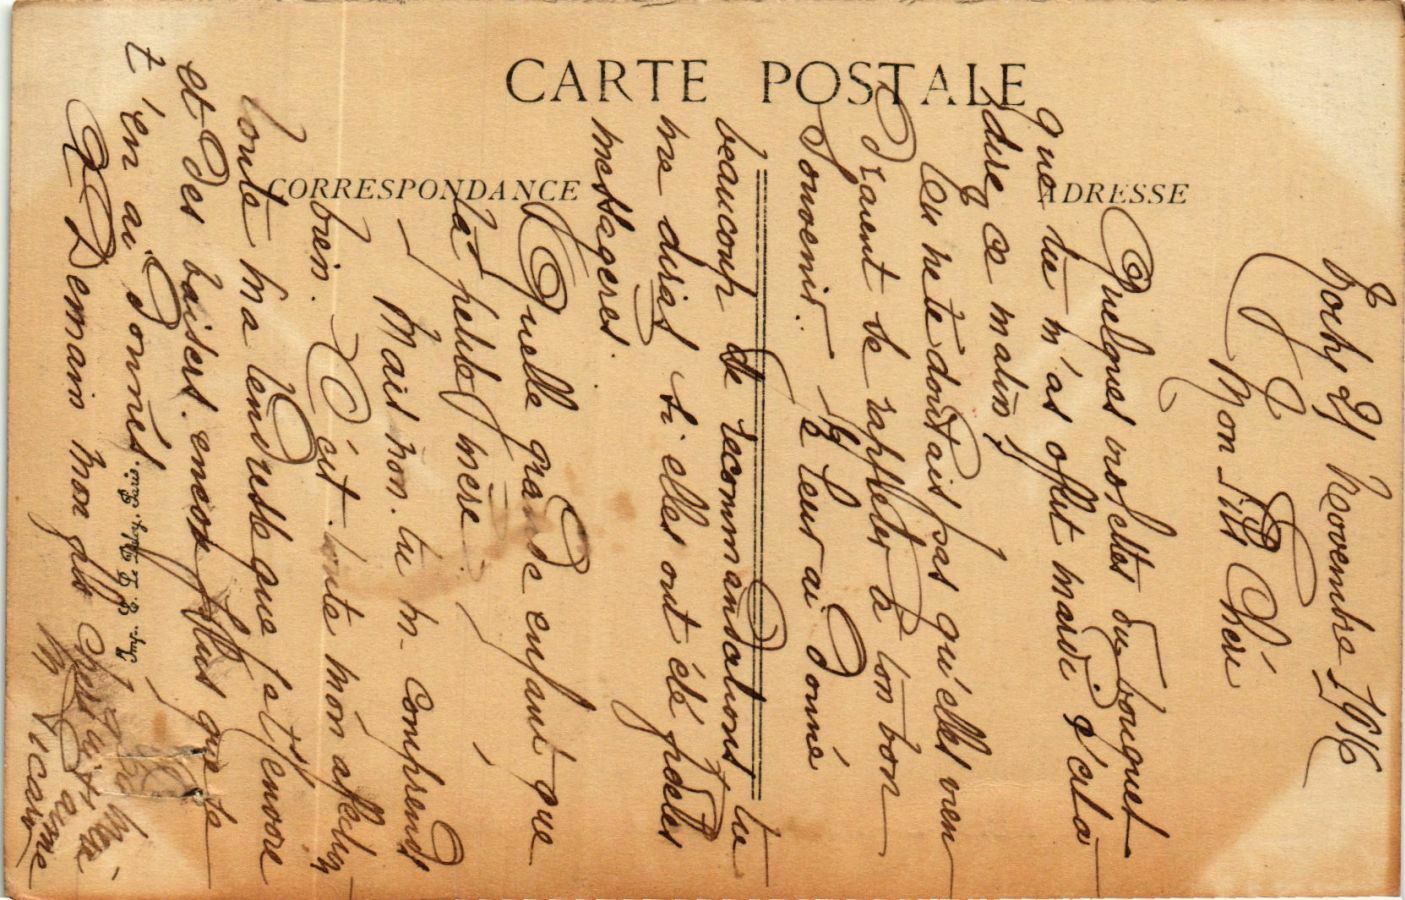 CARTE POSTALE
CORRESPONDANCE
ADRESSE
21 Novembre 1916
Mon Fils Chéri
Quelques violettes du bouquet
que tu m'as offert mardi c'est à
dire ce matin
tu ne te doutais pas qu'elles vien
draient te rappeler à ton bon
Souvenir. Je leur ai donné
beaucoup de recommandations tu
me diras si elles ont été fideles
messageres.
Quelle grande enfant que
ta petite mère
Mais non. tu m comprends
bien. C'est toute mon affection
toute ma tendresse que j'attenvoie
et des baisers encore plus que je
t'en ai donnés
Demain mon fils Chéri
t'aime
Imp. E. Le Deley, Paris.